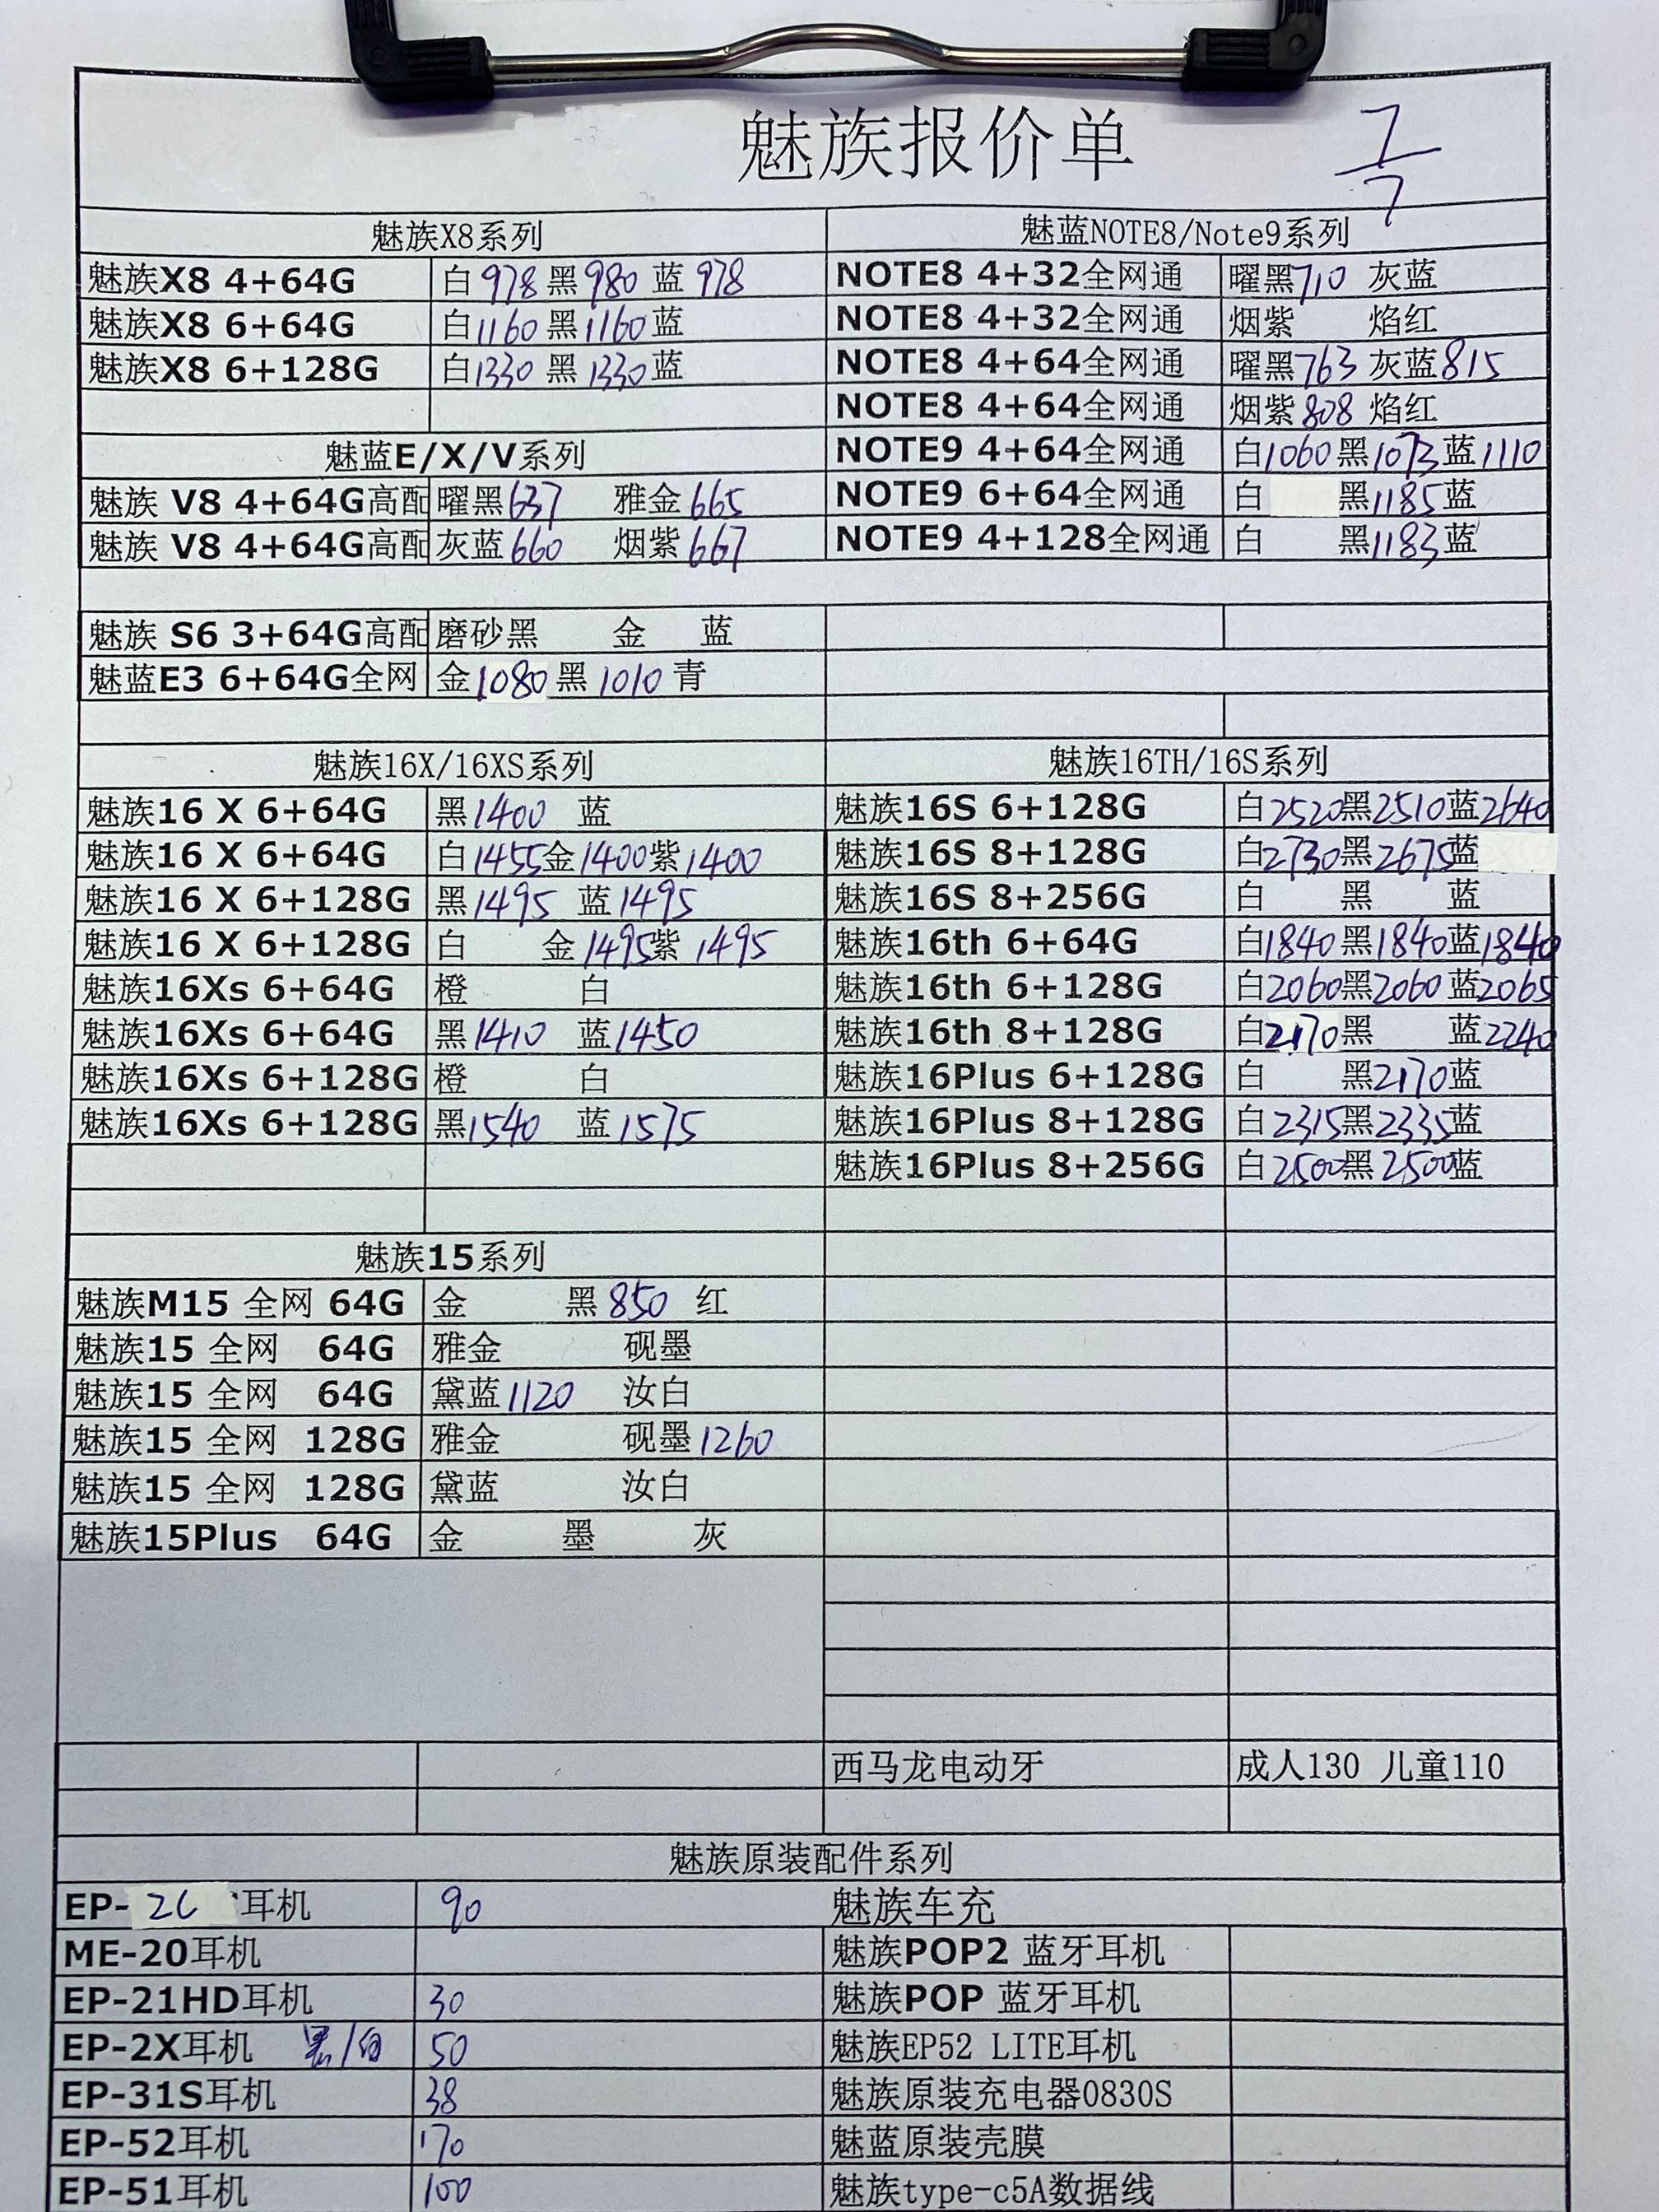 魅族报价单
7/7
魅族X8系列
魅族X8 4+64G 白978 黑980 蓝978
魅族X8 6+64G 白1160 黑1160 蓝
魅族X8 6+128G 白1330 黑1330 蓝
魅蓝E/X/V系列
魅族 V8 4+64G高配 曜黑637 雅金665
魅族 V8 4+64G高配 灰蓝660 烟紫667
魅蓝NOTE8/Note9系列
NOTE8 4+32全网通 曜黑710 灰蓝
NOTE8 4+32全网通 烟紫 焰红
NOTE8 4+64全网通 曜黑763 灰蓝815
NOTE8 4+64全网通 烟紫808 焰红
NOTE9 4+64全网通 白1060 黑1073 蓝1110
NOTE9 6+64全网通 白 黑1185 蓝
NOTE9 4+128全网通 白 黑1183 蓝
魅族 S6 3+64G高配 磨砂黑 金 蓝
魅蓝E3 6+64G全网 金1080 黑1010 青
魅族16X/16XS系列
魅族16 X 6+64G 黑1400 蓝
魅族16 X 6+64G 白1455 金1400 紫1400
魅族16 X 6+128G 黑1495 蓝1495
魅族16 X 6+128G 白 金1495 紫1495
魅族16Xs 6+64G 橙 白
魅族16Xs 6+64G 黑1410 蓝1450
魅族16Xs 6+128G 橙 白
魅族16Xs 6+128G 黑1540 蓝1575
魅族16TH/16S系列
魅族16S 6+128G 白2520 黑2510 蓝2640
魅族16S 8+128G 白2730 黑2675 蓝
魅族16S 8+256G 白 黑 蓝
魅族16th 6+64G 白1840 黑1840 蓝1840
魅族16th 6+128G 白2060 黑2060 蓝2065
魅族16th 8+128G 白2170 黑 蓝2240
魅族16Plus 6+128G 白 黑2170 蓝
魅族16Plus 8+128G 白2315 黑2335 蓝
魅族16Plus 8+256G 白2500 黑2500 蓝
魅族15系列
魅族M15 全网 64G 金 黑850 红
魅族15 全网 64G 雅金 砚墨
魅族15 全网 64G 黛蓝1120 汝白
魅族15 全网 128G 雅金 砚墨1260
魅族15 全网 128G 黛蓝 汝白
魅族15Plus 64G 金 墨 灰
西马龙电动牙 成人130 儿童110
魅族原装配件系列
EP-2C耳机 90 魅族车充
ME-20耳机 魅族POP2 蓝牙耳机
EP-21HD耳机 30 魅族POP 蓝牙耳机
EP-2X耳机 黑/白 50 魅族EP52 LITE耳机
EP-31S耳机 38 魅族原装充电器0830S
EP-52耳机 170 魅蓝原装壳膜
EP-51耳机 100 魅族type-c5A数据线